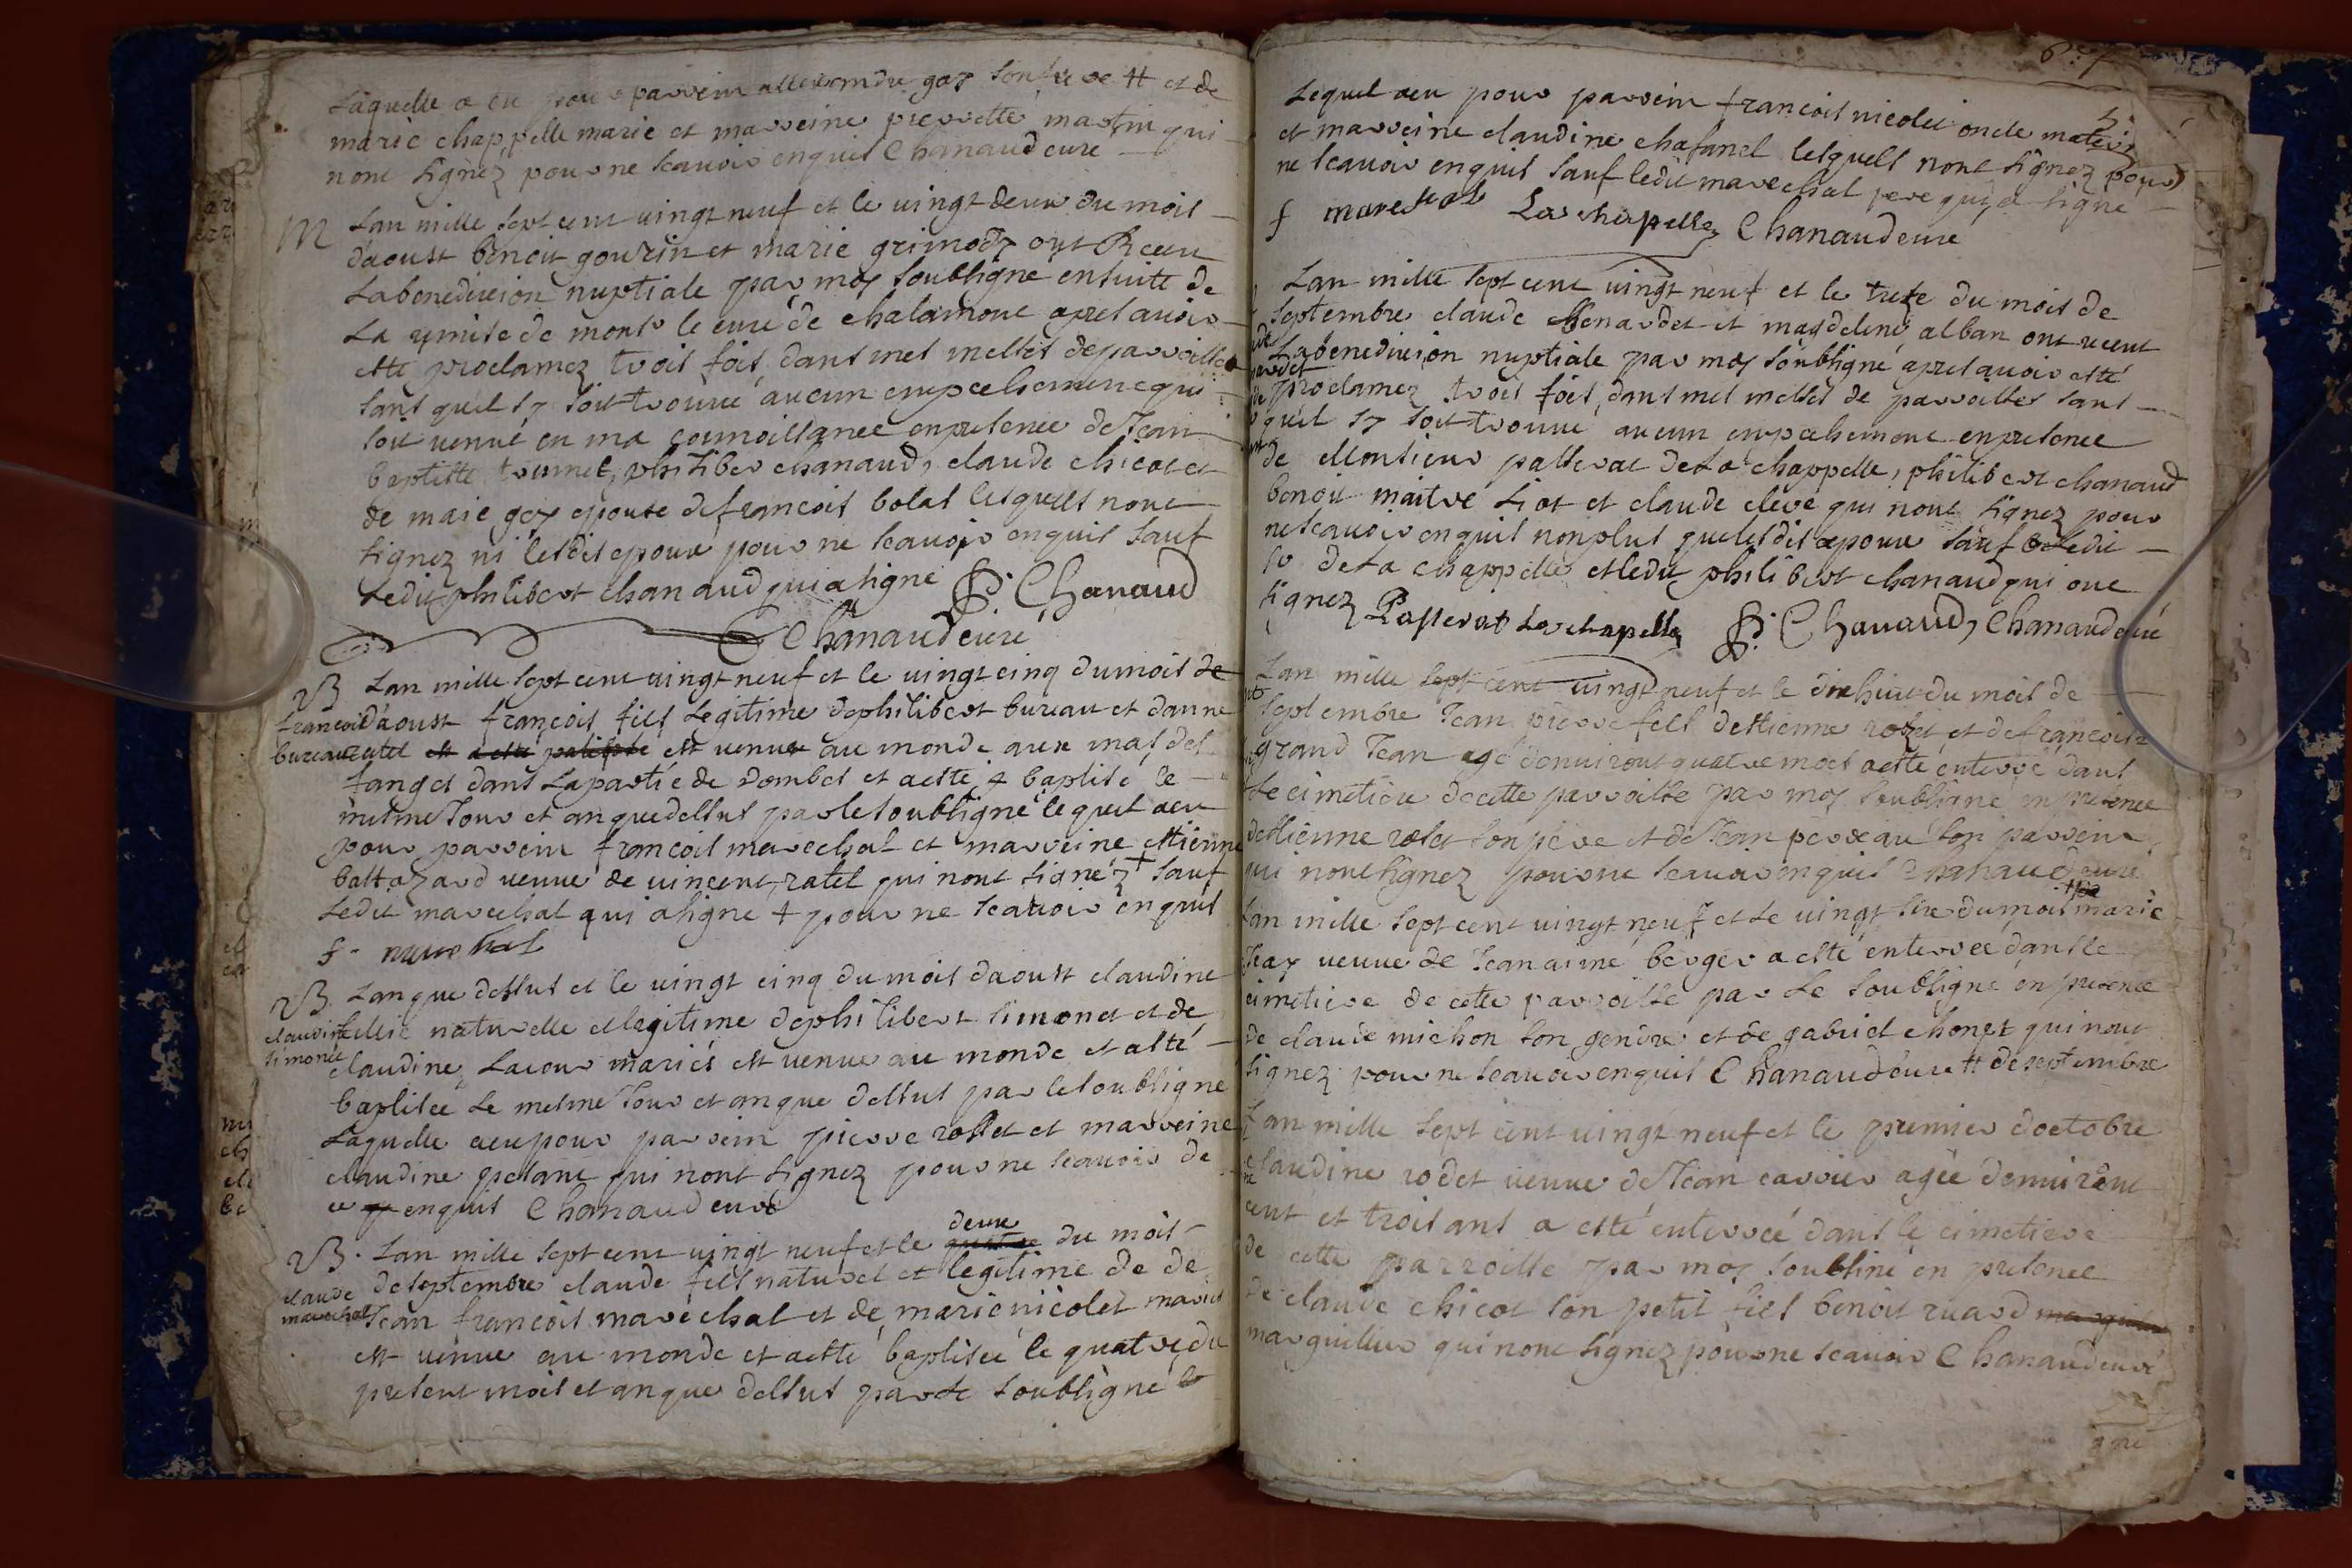 Laquelle a eu pour parrein
marie chappelle marie et marreine pierrette martin qui
nont signez pour ne scavoir enquis Chanaud cure
M Lan mille sept cent vingt neuf et le vingt deux du mois
daoust benoit gourin et marie grimody ont Receu
La benediction nuptiale par moy soubsigne ensuite de
La remise de monsr le cure de chalamont apres avoir
esté proclamez trois fois dans mes messes de parroisse
sans quil sy soit trouvé aucun empechement qui
soit venué en ma connoissance en presence de Jean
baptiste philiber chanaud, claude chicot et
de marie goy epouse de francois bolas lesquels nont
signez ni lesdis epoux pour ne scavoir enquis sauf
Ledit philibert chanaud qui a signé P. Chanaud
Chanaud cure
B Lan mille sept cent vingt neuf et le vingt cinq du mois de
francois daoust françois fils Legitime de philibert bureau et danne
bureau est venu au monde aux mas des
tanges dans La partie de dombes et a esté + baptisé le
mesme Jour et an que dessus par le soubsigné le quel a eu
pour parrein francois marechal et marreine ettienne
baltazard veuve de vincent ratel qui nont signéz + sauf
Ledit marechal qui a signé + pour ne scavoir enquis
f. marechal
B. Lan que dessus et le vingt cinq du mois daoust claudine
claudine fillie naturelle et legitime de philibert simonet et de
simonet claudine Lacour mariés est venue au monde et a esté
baptisée Le mesme Jour et an que dessus par le soubsigne
Laquelle a eu pour parrein pierre rosset et marreine
claudine qui nont signez pour ne scavoir de
ce enquis Chanaud cure
deux
B. Lan mille sept cent vingt neuf et le quatre du mois
claude de septembre claude fils naturel et legitime de de
marechal Jean francois marechal et de marie nicolet mariés
est venue au monde et a esté baptisée le quatre du
present mois et an que dessus par Le soubsigné

Lequel a eu pour parrein francois nicolet oncle mater
et marreine claudine chafanel lesquels nont signez pour
ne scavoir enquis sauf ledit marechal pere qui a signé
f marechal La chapelle Chanaud cure
Lan mille sept cent vingt neuf et le treze du mois de
septembre claude benardet et magdelene alban ont receut
La benediction nuptiale par moy soubsigné apres avoir esté
proclamez trois fois dans mes messes de parroisses sans
quil sy soit trouvé aucun empechement en presence
de Monsieur passerat de La chappelle, philibert chanaud
benoit maitre Liot et claude clere qui nont signez pour
ne scavoir enquis non plus que lesdis epoux sauf Ledit
sr de La chappelle et ledit philibert chanaud qui ont
signez Passerat La chapelle P. Chanaud, Chanaud curé
Lan mille sept cent vingt neuf et le dixhuit du mois de
septembre Jean pierre fils dettienne rozet et de francoise
grand Jean agé denvirons quatre mois a esté enterré dans
Le cimetiere de cette parroisse par moy soubsigné en presence
dettienne rozet son pere et de Jean perreau son parrein
qui nont signez pour ne scavoir enquis Chanaud cure
Lan mille sept cent vingt neuf et Le vingt six du mois # marie
veuve de Jean aimé berger a esté enterrée dans le
cimetiere de cette parroisse par Le soubsigne en presence
de claude michon son gendre et de gabriel chonet qui nont
signez pour ne scavoir enquis Chanaud cure # de septembre
Lan mille sept cent vingt neuf et le premier doctobre
claudine rodet veuve de Jean carrier agée denviront
cent et trois ans a esté enterrée dans le cimetiere
de cette parroisse par moy soubsiné en presence
de claude chicot son petit fils benoit ruard
marguillier qui nont signez pour ne scavoir Chanaud curé